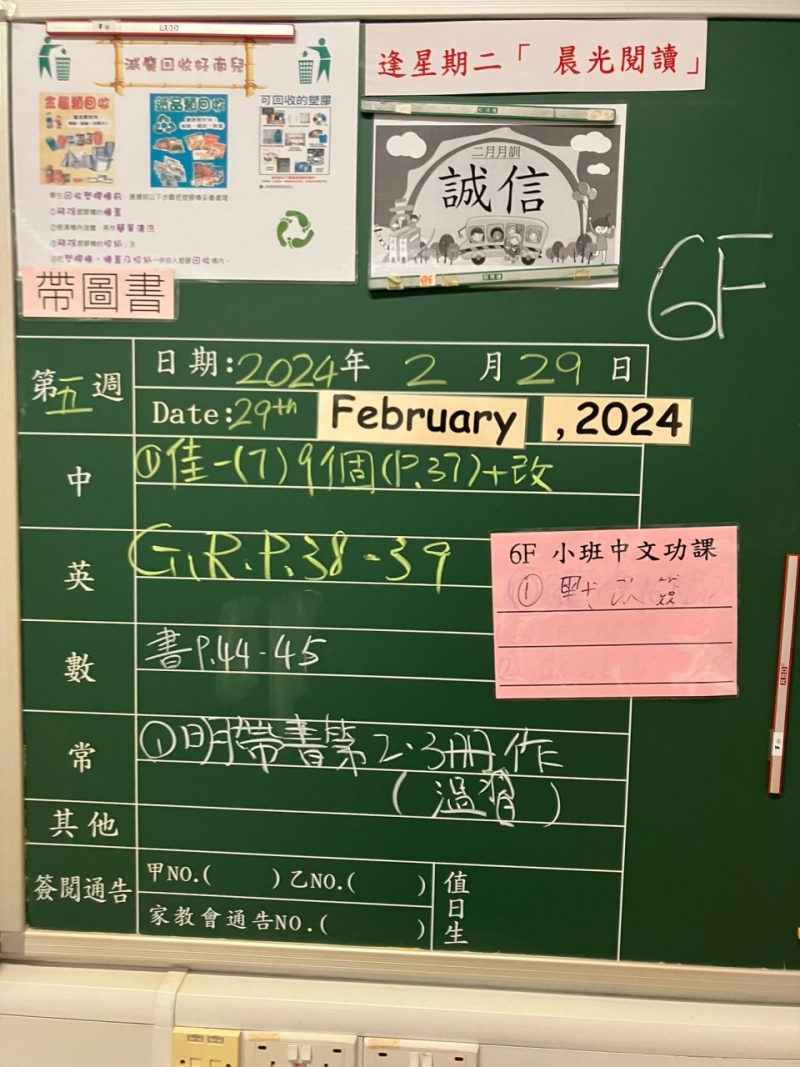 減廢回收好南兒
金屬類回收
紙品類回收
可回收的塑膠
逢星期二「 晨光閱讀」
二月月訓
誠信
帶圖書
6F
第五週
日期:2024年 2 月 29 日
Date:29th February ,2024
中
①佳一(7)9個(P.37)+改
英
G.R.P.38-39
6F 小班中文功課
數
書P.44-45
常
①明帶書第2.3冊作
(溫習)
其他
簽閱通告
甲NO.( )乙NO.( )
家教會通告NO.( )
值日生